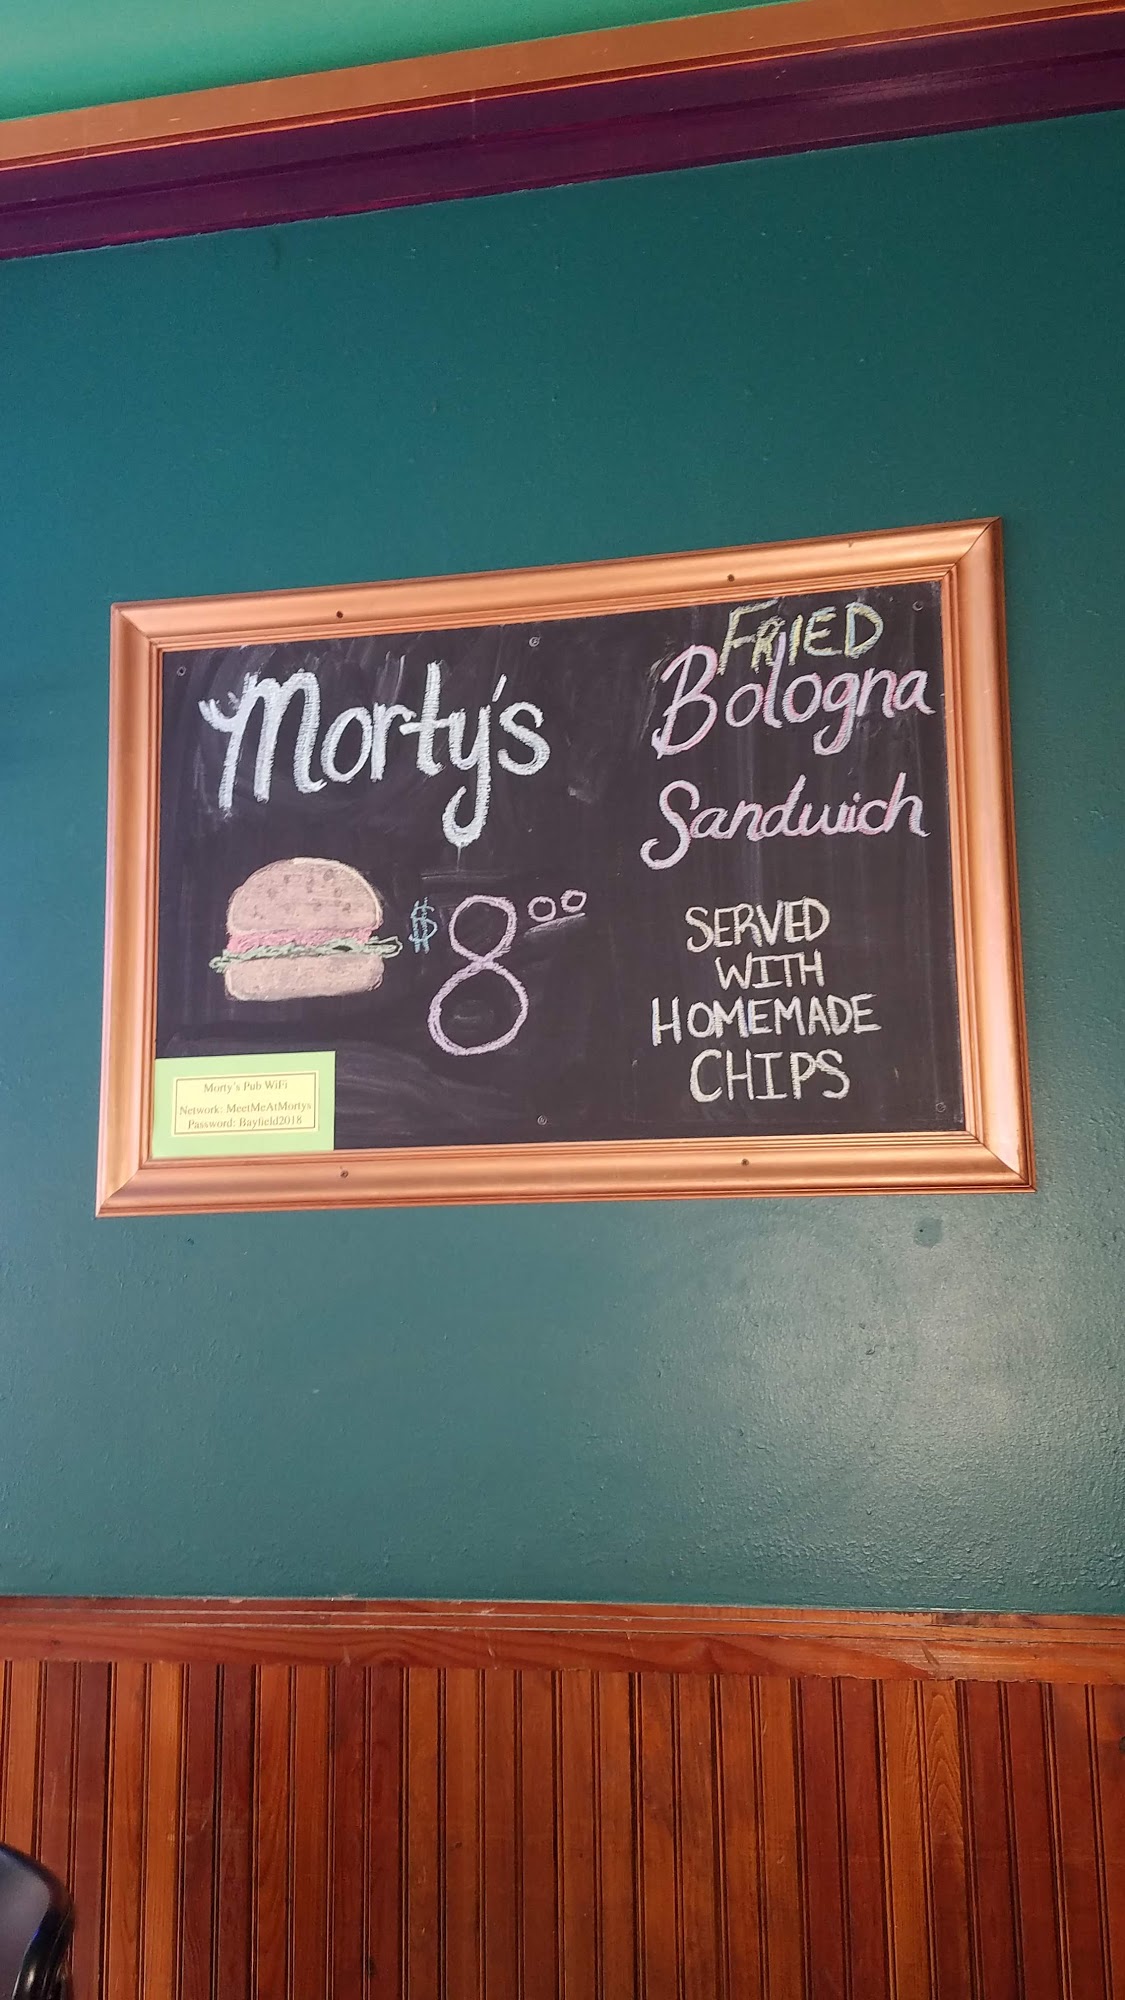 Morty's
$8.00
FRIED
Bologna
Sandwich
SERVED
WITH
HOMEMADE
CHIPS
Morty's Pub WiFi
Network: MeetMeAtMortys
Password: Bayfield2018